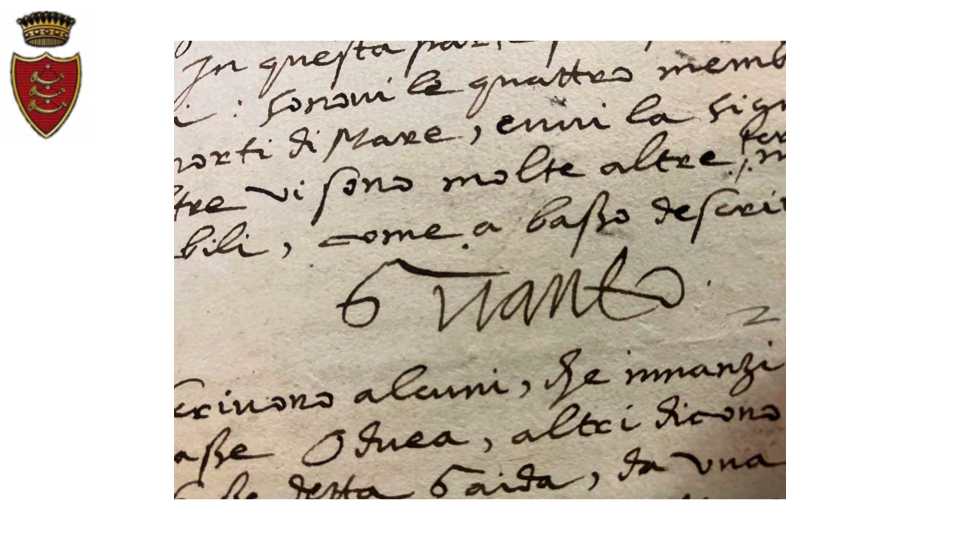 In questa
i : sonovi le quattro memb
porti di Mare, euui la sign
ltre vi sono molte altre
bili, come a basso descri
2
crivono alcuni, che innanzi
asse Oduea, altri dicono
detta da una